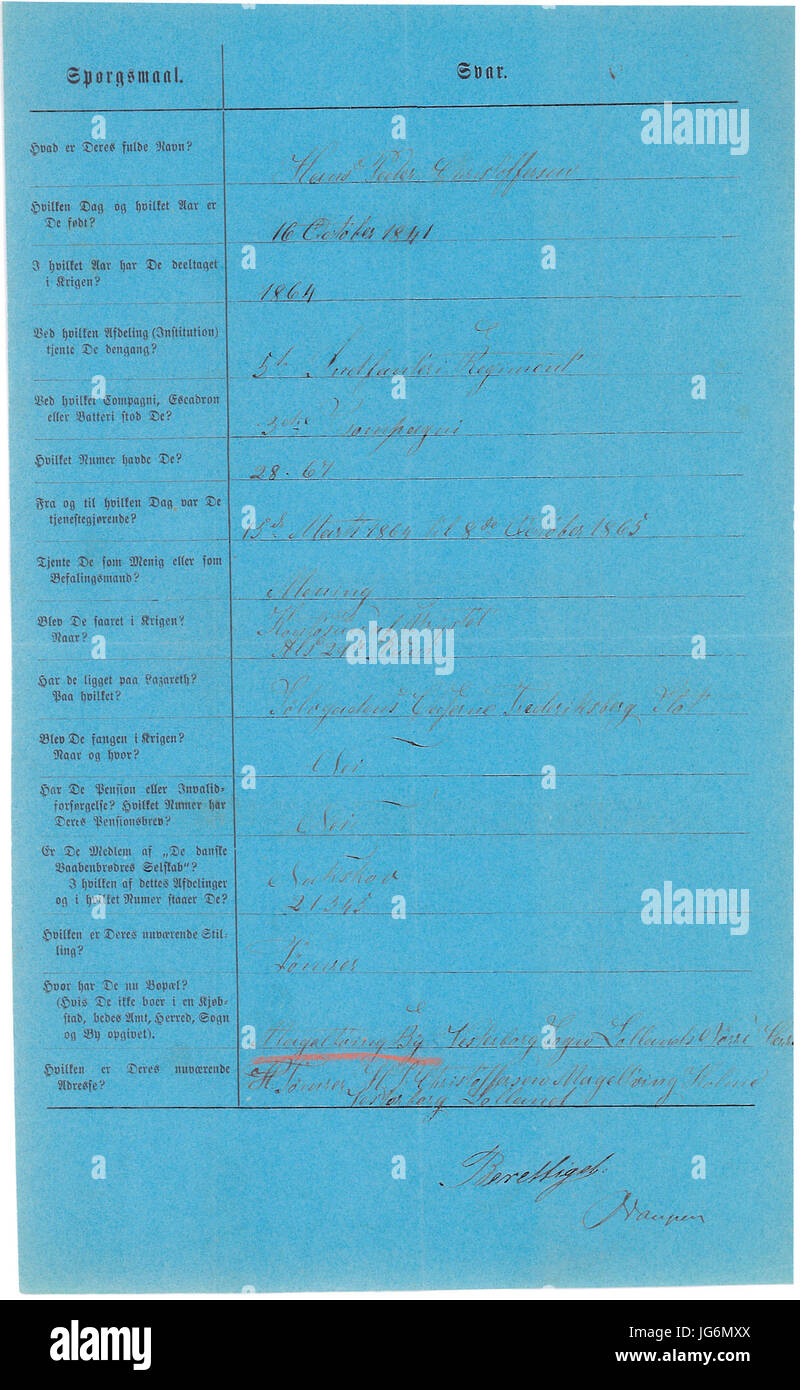 Spørgsmaal.
Svar.
Hvad er Deres fulde Navn?
Hans Peder Christoffersen
Hvilken Dag og hvilket Aar er
De født?
16 October 1841
I hvilket Aar har De deeltaget
i Krigen?
1864
Ved hvilken Afdeling (Institution)
tjente De dengang?
5te Infanteri Regiment
Ved hvilket Compagni, Escadron
eller Batteri stod De?
3die Compagni
Hvilket Numer havde De?
28. 67
Fra og til hvilken Dag var De
tjenestegjørende?
15de Marts 1864 til 8de October 1865
Tjente De som Menig eller som
Befalingsmand?
Menig
Blev De saaret i Krigen?
Naar?
Als 29de Juni
Har de ligget paa Lazareth?
Paa hvilket?
Fredriksberg Slot
Blev De fangen i Krigen?
Naar og hvor?
Nei
Har De Pension eller Invalid-
forsørgelse? Hvilket Numer har
Deres Pensionsbrev?
Nei
Er De Medlem af „De danske
Vaabenbrødres Selskab"?
I hvilken af dettes Afdelinger
og i hvilket Numer staaer De?
Nakskov
21345
Hvilken er Deres nuværende Stil-
ling?
Tömrer
Hvor har De nu Bopæl?
(Hvis De ikke boer i en Kjøb-
stad, bedes Amt, Herred, Sogn
og By opgivet).
By Vesterborg Sogn Lollands Nörre
Hvilken er Deres nuværende
Adresse?
H Tömrer H P Christoffersen
Vesterborg Lolland
Berettiget.
a
alamy
alamy
JG6MXX
www.alamy.com